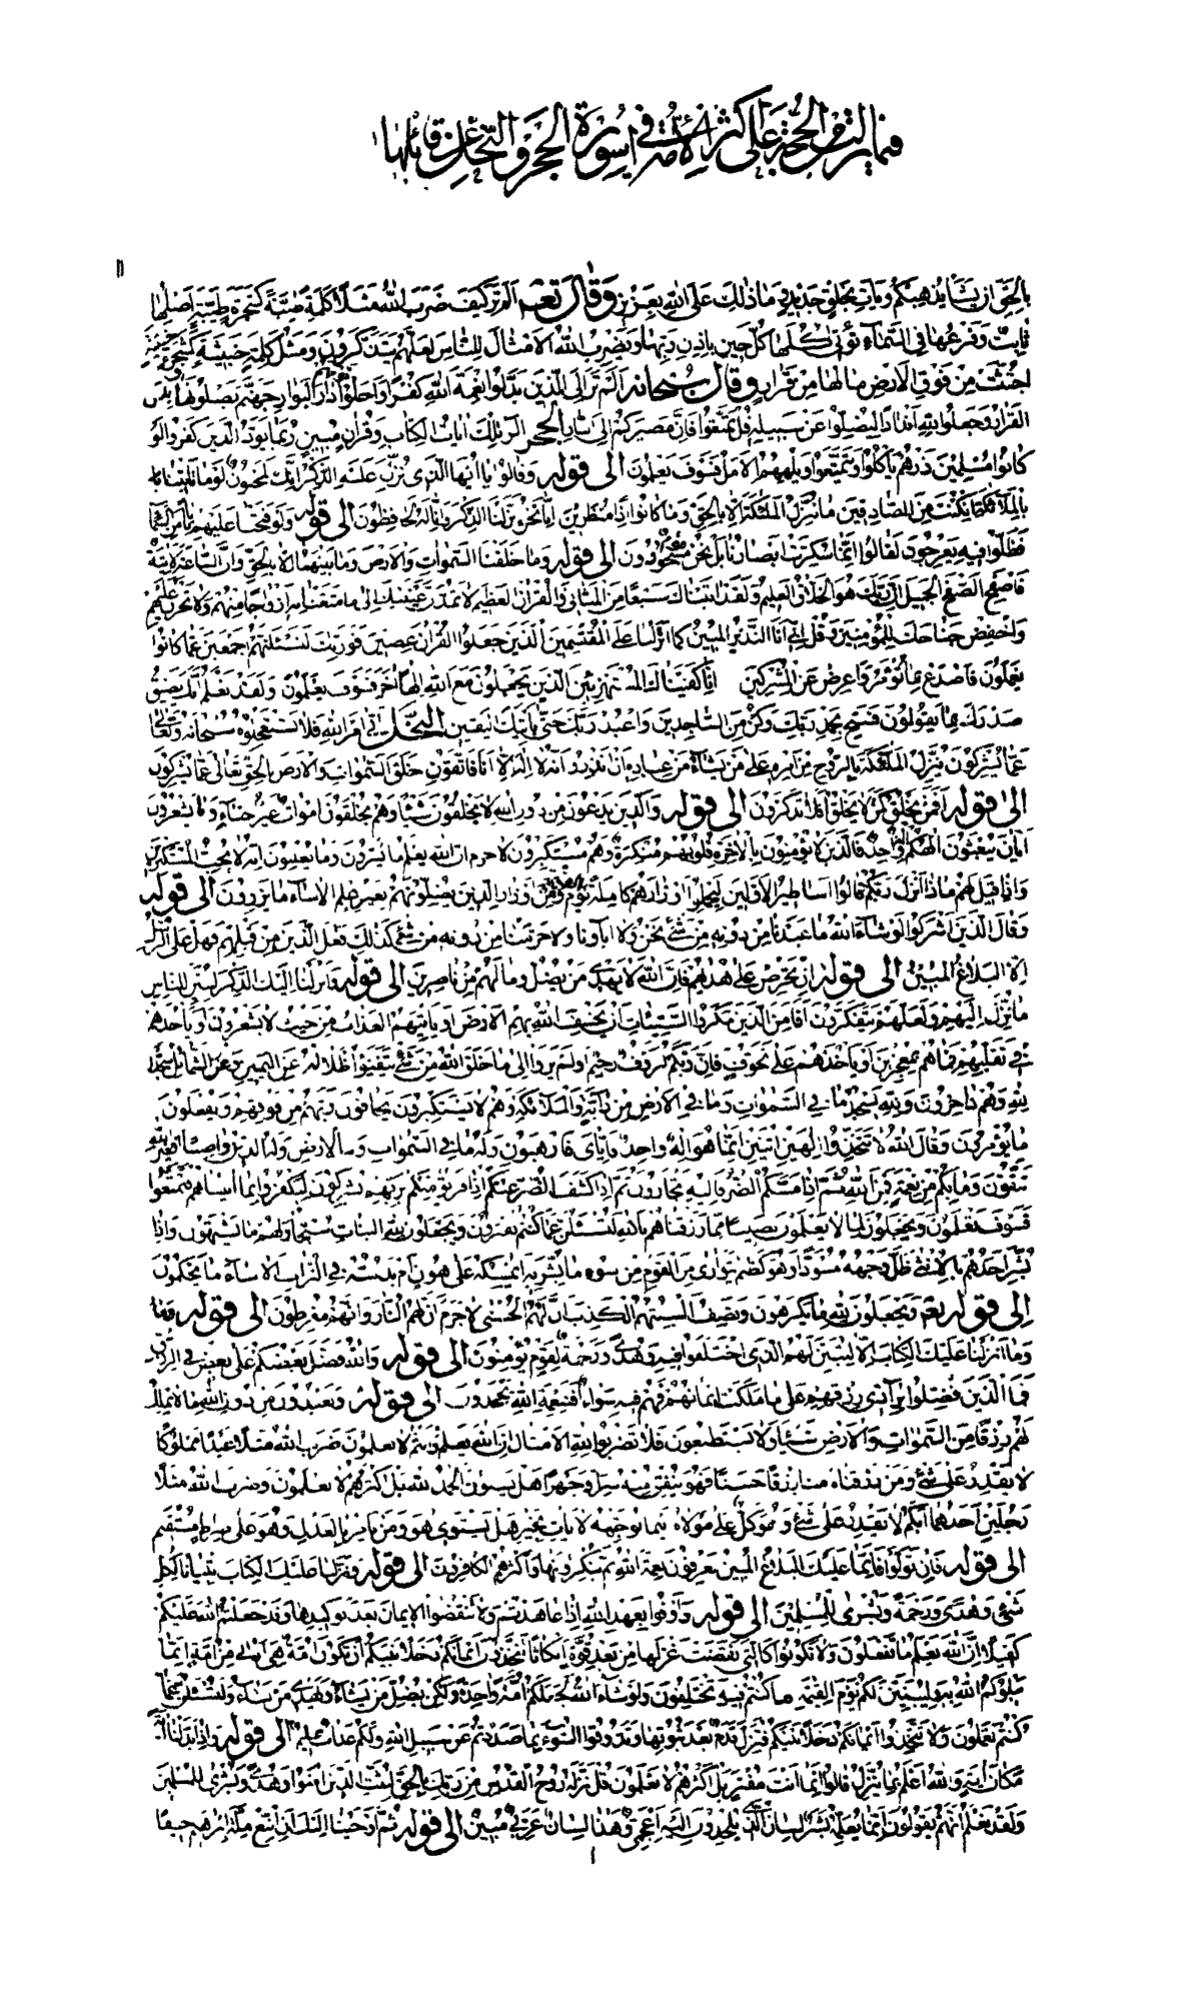 فيما التزم الحجة على أكثر الأمة في سورة الحجر والنحل عن قائلها
١١
بالحق إن يشأ يذهبكم ويأت بخلق جديد وما ذلك على الله بعزيز وقال تعـ ألم تر كيف ضرب الله مثلا كلمة طيبة كشجرة طيبة أصلها
ثابت وفرعها في السماء تؤتي أكلها كل حين بإذن ربها ويضرب الله الأمثال للناس لعلهم يتذكرون ومثل كلمة خبيثة كشجرة خبيثة
اجتثت من فوق الأرض ما لها من قرار وقال سبحانه ألم تر إلى الذين بدلوا نعمة الله كفرا وأحلوا قومهم دار البوار جهنم يصلونها وبئس
القرار وجعلوا لله أندادا ليضلوا عن سبيله قل تمتعوا فإن مصيركم إلى النار الحجر الر تلك آيات الكتاب وقرآن مبين ربما يود الذين كفروا لو
كانوا مسلمين ذرهم يأكلوا ويتمتعوا ويلههم الأمل فسوف يعلمون الى قوله وقالوا يا أيها الذي نزل عليه الذكر إنك لمجنون لو ما تأتينا
بالملائكة إن كنت من الصادقين ما ننزل الملئكة إلا بالحق وما كانوا إذا منظرين إنا نحن نزلنا الذكر وإنا له لحافظون الى قوله ولو فتحنا عليهم بابا من السماء
فظلوا فيه يعرجون لقالوا إنما سكرت أبصارنا بل نحن قوم مسحورون الى قوله وما خلقنا السموات والأرض وما بينهما إلا بالحق وإن الساعة لآتية
فاصفح الصفح الجميل إن ربك هو الخلاق العليم ولقد آتيناك سبعا من المثاني والقرآن العظيم لا تمدن عينيك إلى ما متعنا به أزواجا منهم ولا تحزن عليهم
واخفض جناحك للمؤمنين وقل إني أنا النذير المبين كما أنزلنا على المقتسمين الذين جعلوا القرآن عضين فوربك لنسئلنهم أجمعين عما كانوا
يعملون فاصدع بما تؤمر وأعرض عن المشركين إنا كفيناك المستهزئين الذين يجعلون مع الله إلها آخر فسوف يعلمون ولقد نعلم أنك يضيق
صدرك بما يقولون فسبح بحمد ربك وكن من الساجدين واعبد ربك حتى يأتيك اليقين النحل أتى أمر الله فلا تستعجلوه سبحانه وتعالى
عما يشركون ينزل الملئكة بالروح من أمره على من يشاء من عباده أن أنذروا أنه لا إله إلا أنا فاتقون خلق السموات والأرض بالحق تعالى عما يشركون
الى قوله أفمن يخلق كمن لا يخلق أفلا تذكرون الى قوله والذين يدعون من دون الله لا يخلقون شيئا وهم يخلقون أموات غير أحياء وما يشعرون
أيان يبعثون إلهكم إله واحد فالذين لا يؤمنون بالآخرة قلوبهم منكرة وهم مستكبرون لا جرم أن الله يعلم ما يسرون وما يعلنون إنه لا يحب المستكبرين
وإذا قيل لهم ماذا أنزل ربكم قالوا أساطير الأولين ليحملوا أوزارهم كاملة يوم القيمة ومن أوزار الذين يضلونهم بغير علم ألا ساء ما يزرون الى قوله
وقال الذين أشركوا لو شاء الله ما عبدنا من دونه من شئ نحن ولا آباؤنا ولا حرمنا من دونه من شئ كذلك فعل الذين من قبلهم فهل على الرسل
إلا البلاغ المبين الى قوله إن تحرص على هداهم فإن الله لا يهدي من يضل وما لهم من ناصرين الى قوله وأنزلنا إليك الذكر لتبين للناس
ما نزل إليهم ولعلهم يتفكرون أفأمن الذين مكروا السيئات أن يخسف الله بهم الأرض أو يأتيهم العذاب من حيث لا يشعرون أو يأخذهم
في تقلبهم فما هم بمعجزين أو يأخذهم على تخوف فإن ربكم لرؤف رحيم أولم يروا إلى ما خلق الله من شئ يتفيؤا ظلاله عن اليمين وعن الشمائل سجدا
لله وهم داخرون ولله يسجد ما في السموات وما في الأرض من دابة والملائكة وهم لا يستكبرون يخافون ربهم من فوقهم ويفعلون
ما يؤمرون وقال الله لا تتخذوا إلهين اثنين إنما هو إله واحد فإياي فارهبون وله ما في السموات والأرض وله الدين واصبا أفغير الله
تتقون وما بكم من نعمة فمن الله ثم إذا مسكم الضر فإليه تجأرون ثم إذا كشف الضر عنكم إذا فريق منكم بربهم يشركون ليكفروا بما آتيناهم فتمتعوا
فسوف تعلمون ويجعلون لما لا يعلمون نصيبا مما رزقناهم تالله لتسئلن عما كنتم تفترون ويجعلون لله البنات سبحانه ولهم ما يشتهون وإذا
بشر أحدهم بالأنثى ظل وجهه مسودا وهو كظيم يتوارى من القوم من سوء ما بشر به أيمسكه على هون أم يدسه في التراب ألا ساء ما يحكمون
إلى قوله تعـ ويجعلون لله ما يكرهون وتصف ألسنتهم الكذب أن لهم الحسنى لا جرم أن لهم النار وأنهم مفرطون الى قوله تعا
وما أنزلنا عليك الكتاب إلا لتبين لهم الذي اختلفوا فيه وهدى ورحمة لقوم يؤمنون الى قوله والله فضل بعضكم على بعض في الرزق
فما الذين فضلوا برآدي رزقهم على ما ملكت أيمانهم فهم فيه سواء أفبنعمة الله يجحدون الى قوله ويعبدون من دون الله ما لا يملك
لهم رزقا من السموات والأرض شيئا ولا يستطيعون فلا تضربوا لله الأمثال إن الله يعلم وأنتم لا تعلمون ضرب الله مثلا عبدا مملوكا
لا يقدر على شئ ومن رزقناه منا رزقا حسنا فهو ينفق منه سرا وجهرا هل يستون الحمد لله بل أكثرهم لا يعلمون وضرب الله مثلا
رجلين أحدهما أبكم لا يقدر على شئ وهو كل على مولاه أينما يوجهه لا يأت بخير هل يستوي هو ومن يأمر بالعدل وهو على صراط مستقيم
الى قوله فإن تولوا فإنما عليك البلاغ المبين يعرفون نعمة الله ثم ينكرونها وأكثرهم الكافرون الى قوله ونزلنا عليك الكتاب تبيانا لكل
شئ وهدى ورحمة وبشرى للمسلمين الى قوله وأوفوا بعهد الله إذا عاهدتم ولا تنقضوا الإيمان بعد توكيدها وقد جعلتم الله عليكم
كفيلا إن الله يعلم ما تفعلون ولا تكونوا كالتي نقضت غزلها من بعد قوة أنكاثا تتخذون أيمانكم دخلا بينكم أن تكون أمة هي أربى من أمة إنما
يبلوكم الله به وليبينن لكم يوم القيمة ما كنتم فيه تختلفون ولو شاء الله لجعلكم أمة واحدة ولكن يضل من يشاء ويهدي من يشاء ولتسئلن عما
كنتم تعملون ولا تتخذوا أيمانكم دخلا بينكم فتزل قدم بعد ثبوتها وتذوقوا السوء بما صددتم عن سبيل الله ولكم عذاب عظيم الى قوله وإذا بدلنا آية
مكان آية والله أعلم بما ينزل قالوا إنما أنت مفتر بل أكثرهم لا يعلمون قل نزله روح القدس من ربك بالحق ليثبت الذين آمنوا وهدى وبشرى للمسلمين
ولقد نعلم أنهم يقولون إنما يعلمه بشر لسان الذي يلحدون إليه أعجمي وهذا لسان عربي مبين الى قوله ثم أوحينا إليك أن اتبع ملة إبرهيم حنيفا